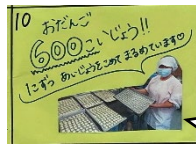 10
おだんご
600こいじょう!!
1こずつ あいじょうをこめて まるめています♡